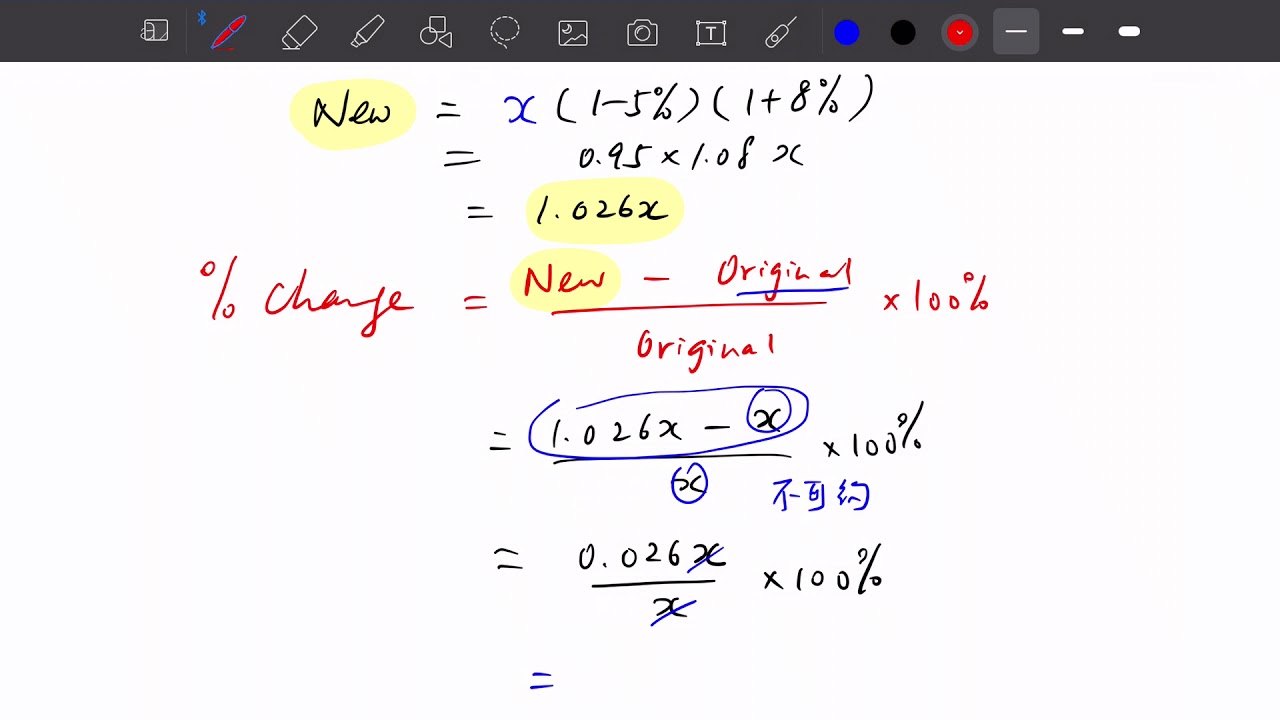 New = x (1-5%)(1+8%)
= 0.95 × 1.08 x
= 1.026x
% change = New - Original / Original ×100%
= 1.026x - x / x ×100%
不可约
= 0.026x / x ×100%
=